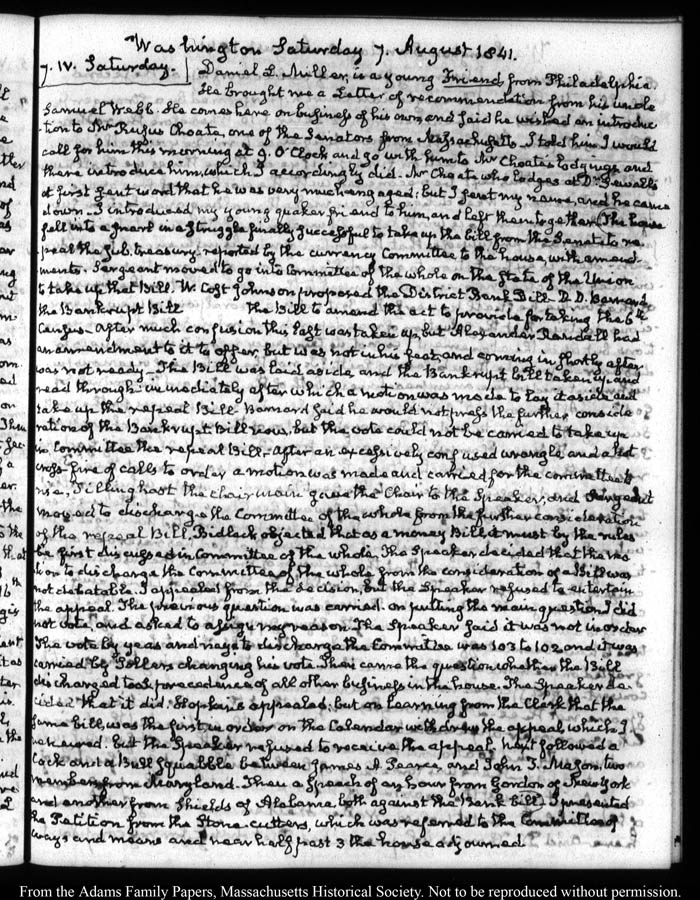 Washington Saturday 7. August 1841.
7. IV. Saturday. Daniel L. Miller, is a young Friend from Philadelphia.
He brought me a Letter of recommendation from his uncle
Samuel Webb. He comes here on business of his own and said he wished an introduc
tion to Mr Rufus Choate, one of the Senators from Massachusetts. I told him I would
call for him this morning at 9. O'Clock and go with him to Mr Choate's lodgings and
there introduce him, which I accordingly did. Mr Choate who lodges at Dr Sewall's
at first sent word that he was very much engaged; but I sent my name, and he came
down. I introduced my young quaker friend to him, and left them together. The house
fell into a snarl in a struggle finally successful to take up the bill from the Senate to re
peal the sub-treasury, reported by the currency Committee to the house, with amend
ments. Sergeant moved to go into Committee of the whole on the State of the Union
to take up that Bill. W. Cost Johnson proposed the District Bank Bill. D. D. Barnard,
the Bankrupt Bill the Bill to amend the act to provide for taking the 6th
Census. After much confusion this last was taken up, but Alexander Randall had
an amendment to it to offer, but was not in his seat, and coming in shortly after
was not ready. The Bill was laid aside and the Bankrupt bill taken up and
read through: immediately after which a motion was made to lay it aside and
take up the repeal Bill. Barnard said he would not press the further conside
ration of the Bankrupt Bill now, but the vote could not be carried to take up
in Committee the repeal Bill. After an excessively confused wrangle, and a hot
cross-fire of calls to order a motion was made and carried for the committee to
rise, Tillinghast the chairman gave the Chair to the Speaker, and Sergeant
moved to discharge the Committee of the whole from the further consideration
of the repeal Bill. Bidlack objected that as a money Bill it must by the rules
be first discussed in Committee of the whole. The Speaker decided that the mo
tion to discharge the Committee of the whole from the consideration of a Bill was
not debatable. I appealed from the decision, but the Speaker refused to entertain
the appeal. The previous question was carried. on putting the main question, I did
not vote, and asked to assign my reason. The Speaker said it was not in order
The vote by yeas and nays to discharge the Committee was 103 to 102 and it was
carried by Sollers changing his vote. Then came the question whether the Bill
discharged took precedence of all other business in the house. The Speaker de
cided that it did. Hopkins appealed; but on learning from the Clerk that the
same bill was the first in order on the Calendar withdrew the appeal, which I
renewed. but the Speaker refused to receive the appeal. Next followed a
Cock and a Bull squabble between James A. Pearce, and John T. Mason, two
members from Maryland. Then a Speech of an hour from Gordon of New York
and another from Shields of Alabama both against the Bank bill. I presented
the Petition from the Stone-cutters, which was referred to the Committee of
ways and means and near half past 3 the house adjourned
From the Adams Family Papers, Massachusetts Historical Society. Not to be reproduced without permission.